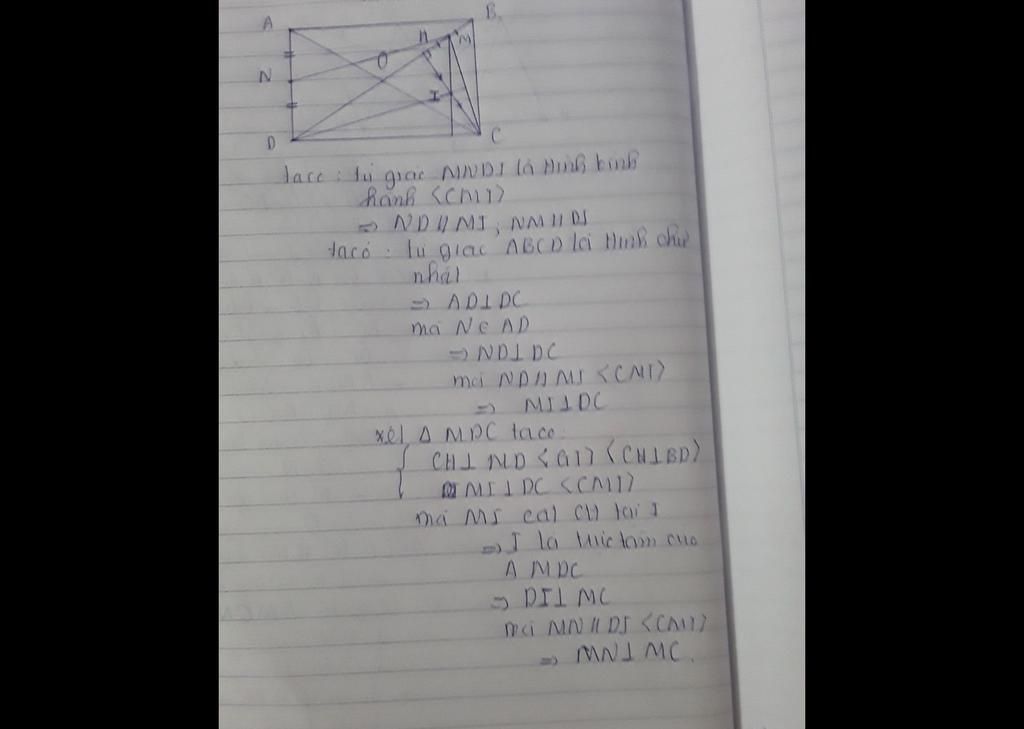 A
B
N
O
H
M
I
D
C
ta có : tứ giác MNDI là hình bình
hành <CMT>
=> ND // MI ; NM // DI
ta có : tứ giác ABCD là hình chữ
nhật
=> AD ⊥ DC
mà N ∈ AD
=> ND ⊥ DC
mà ND // MI <CMT>
=> MI ⊥ DC
xét Δ MDC ta có
CH ⊥ MD <GT> <CH ⊥ BD>
MI ⊥ DC <CMT>
mà MI cắt CH tại I
=> I là trực tâm của
Δ MDC
=> DI ⊥ MC
mà MN // DI <CMT>
=> MN ⊥ MC.